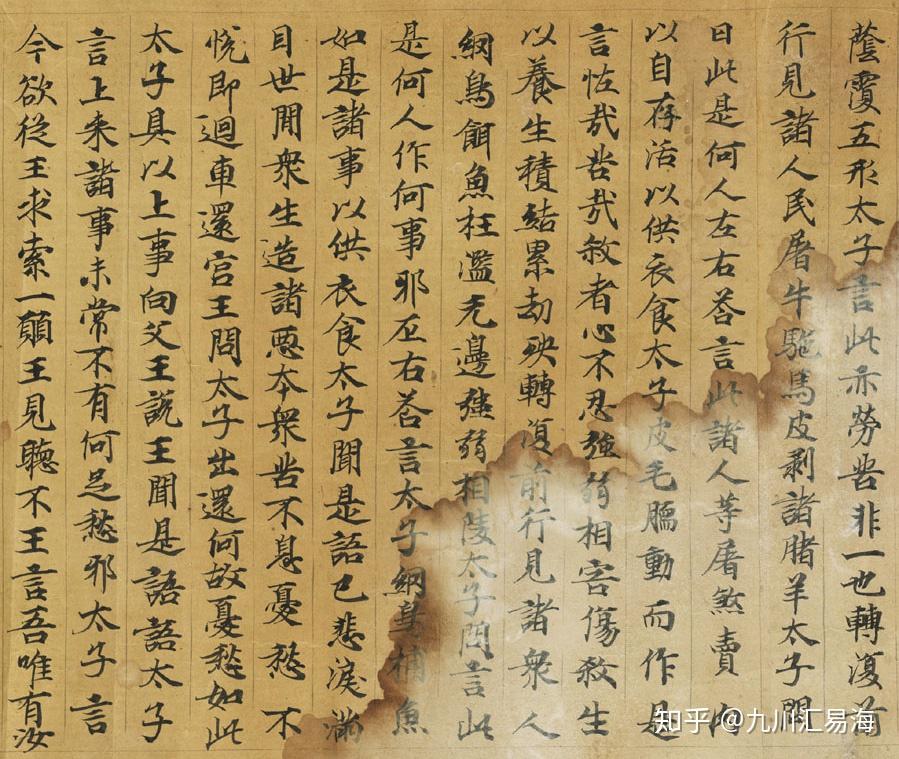 蔭覆五形太子言此亦勞苦非一也轉復前
行見諸人民屠牛駞馬皮剥諸猪羊太子問
曰此是何人左右荅言此諸人等屠煞賣肉
以自存活以供衣食太子皮毛𦟛動而作是
言怪哉苦哉煞者心不忍強弱相害傷殺生
以養生積結累劫殃轉復前行見諸衆人
網鳥餌魚枉濫无邊強弱相陵太子問言此
是何人作何事邪左右荅言太子網鳥捕魚
如是諸事以供衣食太子聞是語已悲淚滿
目世間衆生造諸惡本衆苦不息憂愁不
悅即迴車還宮王問太子出還何故憂愁如此
太子具以上事向父王說王聞是語語太子
言上来諸事未常不有何足愁邪太子言
今欲從王求索一願王見聽不王言吾唯有汝
知乎 @九川汇易海